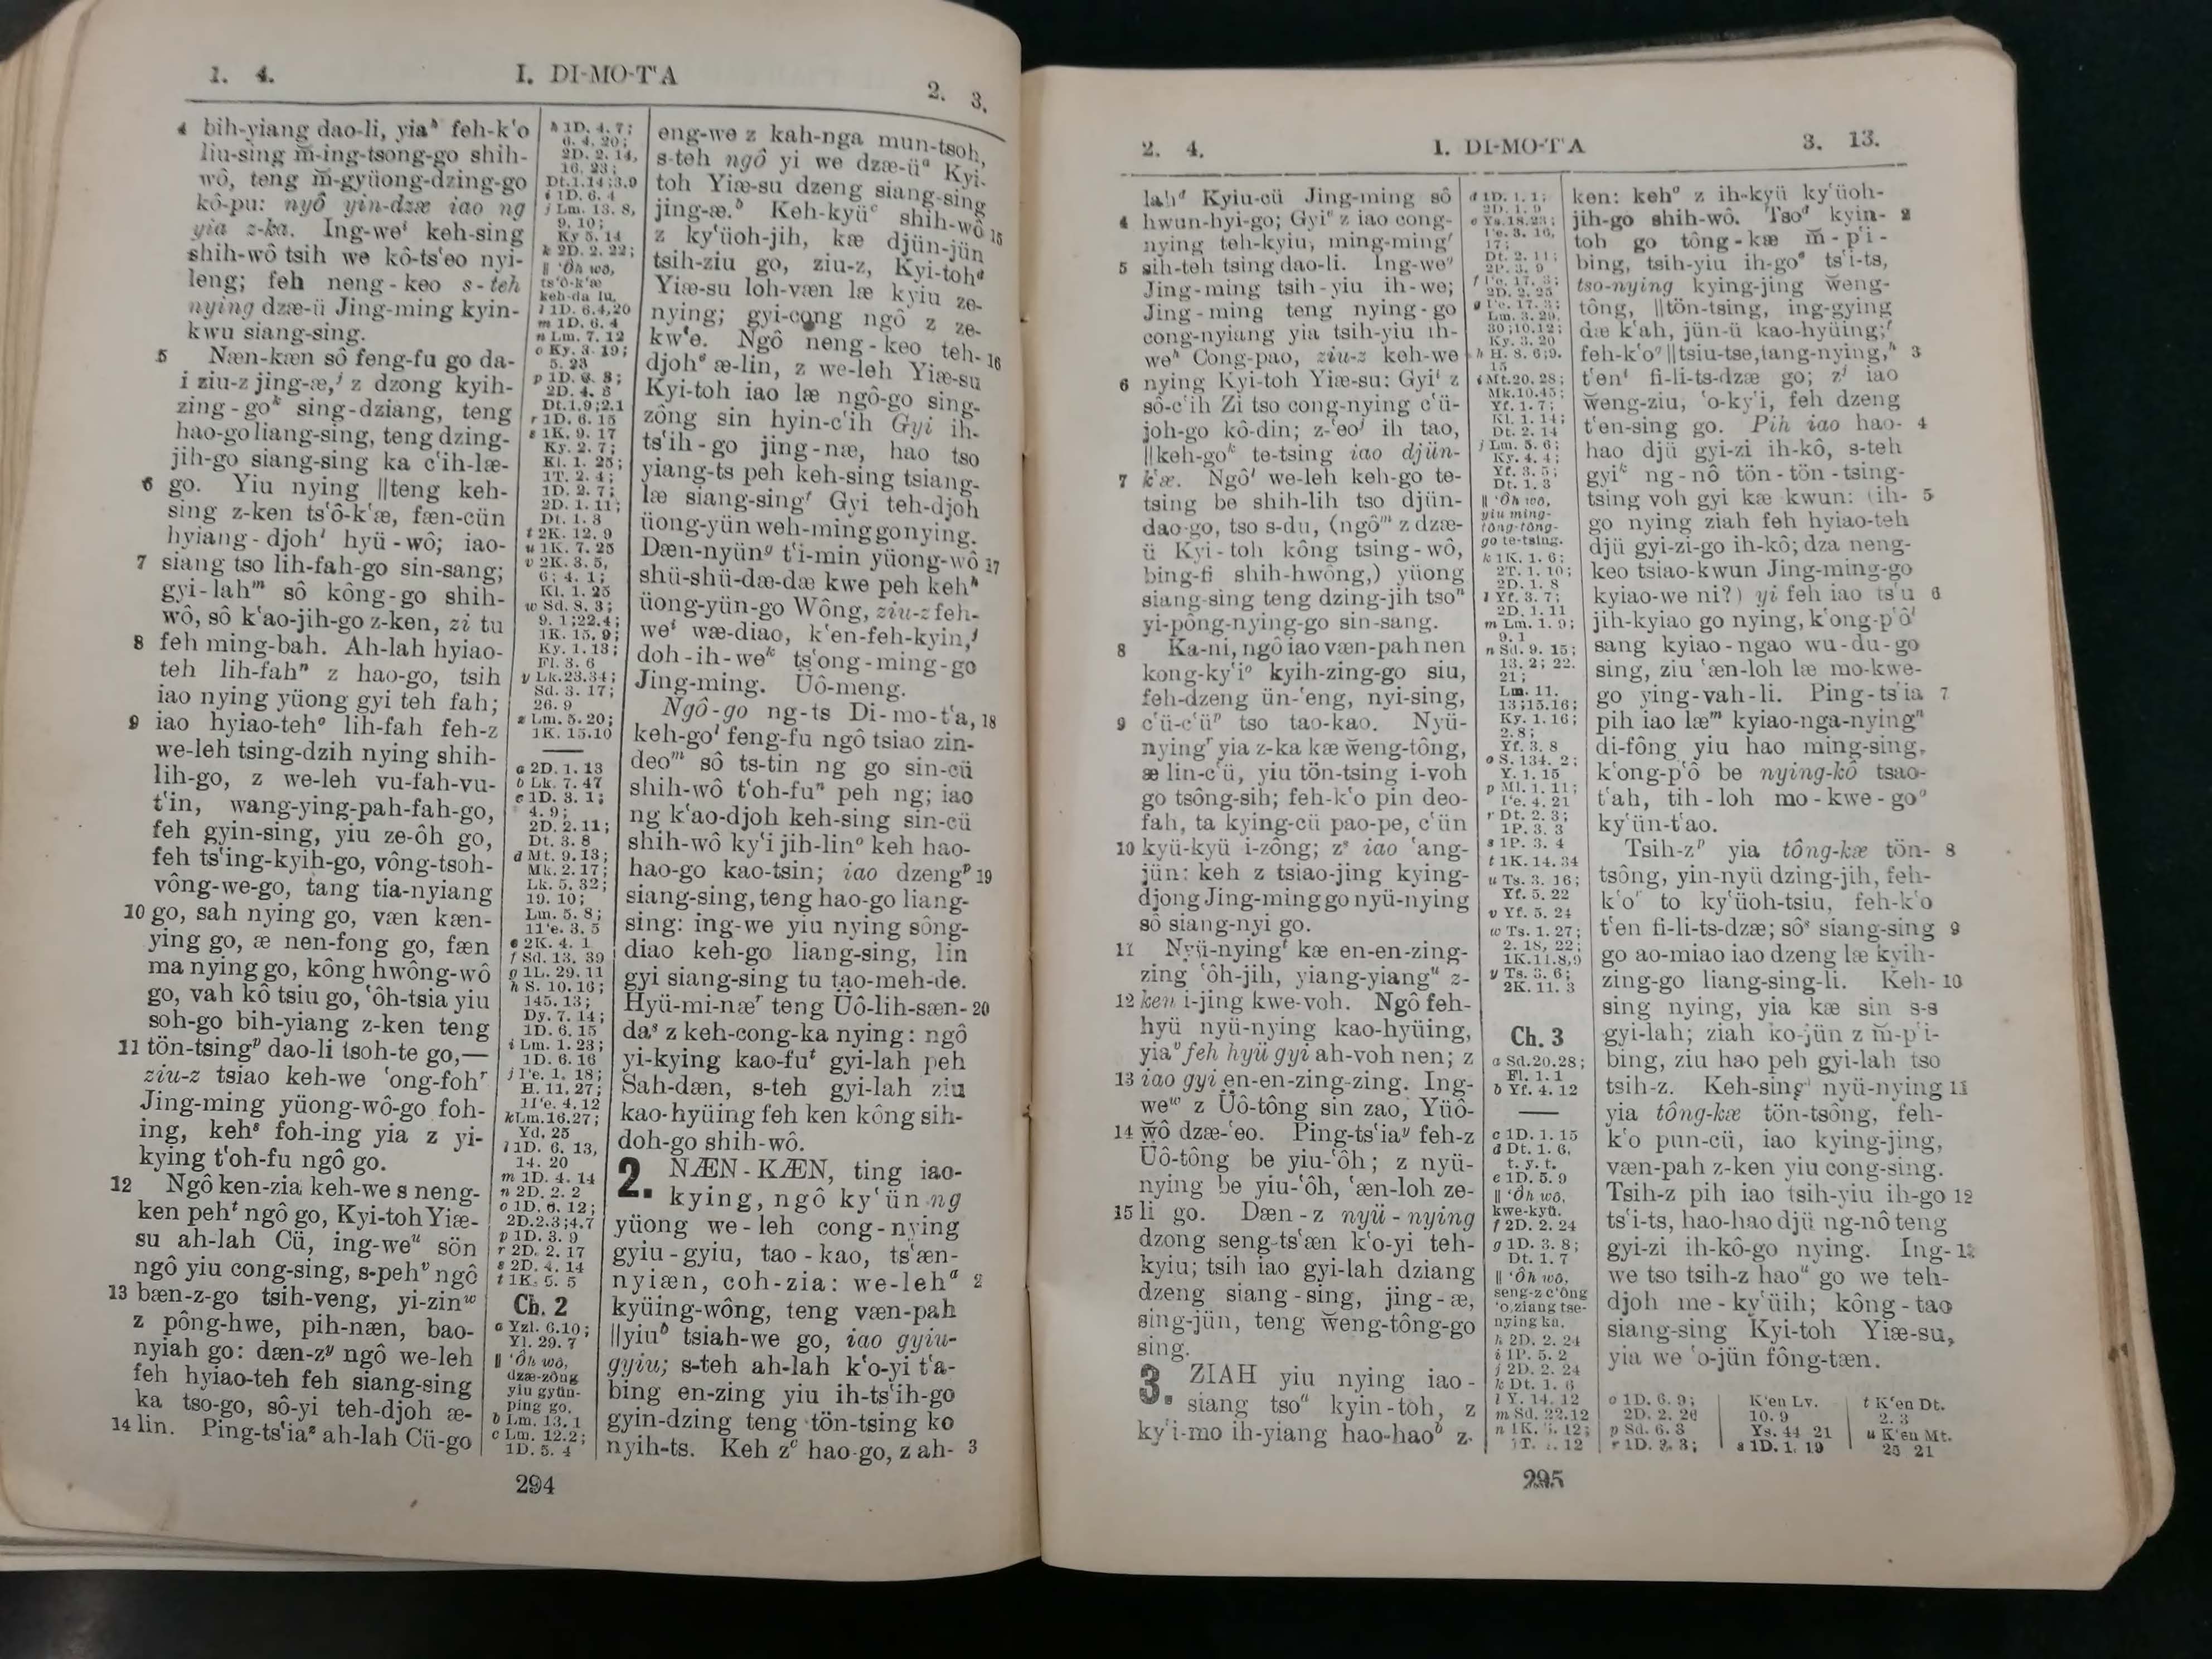 1. 4.
I. DI-MO-T'A
2. 3.
4 bih-yiang dao-li, yiaʰ feh-k'o
liu-sing m̆-ing-tsong-go shih-
wô, teng m̆-gyüong-dzing-go
kô-pu: nyô yin-dzæ iao ng
yia z-ka. Ing-weⁱ keh-sing
shih-wô tsih we kô-ts'eo nyi-
leng; feh neng-keo s-teh
nying dzæ-ü Jing-ming kyin-
kwu siang-sing.
5 Næn-kæn sô feng-fu go da-
i ziu-z jing-æ,ʲ z dzong kyih-
zing-goᵏ sing-dziang, teng
hao-go liang-sing, teng dzing-
jih-go siang-sing ka c'ih-læ-
6 go. Yiu nying ‖teng keh-
sing z-ken ts'ô-k'æ, fæn-cün
hyiang-djohˡ hyü-wô; iao-
7 siang tso lih-fah-go sin-sang;
gyi-lahᵐ sô kông-go shih-
wô, sô k'ao-jih-go z-ken, zi tu
8 feh ming-bah. Ah-lah hyiao-
teh lih-fahⁿ z hao-go, tsih
iao nying yüong gyi teh fah;
9 iao hyiao-tehᵒ lih-fah feh-z
we-leh tsing-dzih nying shih-
lih-go, z we-leh vu-fah-vu-
t'in, wang-ying-pah-fah-go,
feh gyin-sing, yiu ze-ôh go,
feh ts'ing-kyih-go, vông-tsoh-
vông-we-go, tang tia-nyiang
10 go, sah nying go, væn kæn-
ying go, æ nen-fong go, fæn
ma nying go, kông hwông-wô
go, vah kô tsiu go, 'ôh-tsia yiu
soh-go bih-yiang z-ken teng
11 tön-tsingᵖ dao-li tsoh-te go,—
ziu-z tsiao keh-we 'ong-fohʳ
Jing-ming yüong-wô-go foh-
ing, kehˢ foh-ing yia z yi-
kying t'oh-fu ngô go.
12 Ngô ken-zia keh-we s neng-
ken pehᵗ ngô go, Kyi-toh Yiæ-
su ah-lah Cü, ing-weᵘ sön
ngô yiu cong-sing, s-pehᵛ ngô
13 bæn-z-go tsih-veng, yi-zinʷ
z pông-hwe, pih-næn, bao-
nyiah go: dæn-zʸ ngô we-leh
feh hyiao-teh feh siang-sing
ka tso-go, sô-yi teh-djoh æ-
14 lin. Ping-ts'iaᶻ ah-lah Cü-go
h 1D. 4. 7;
6. 4. 20;
2D. 2. 14,
16. 23;
Dt.1.14;3.9
i 1D. 6. 4
j Lm. 13. 8,
9. 10;
Ky 5. 14
k 2D. 2. 22;
‖ 'Ôh wô,
ts'ô-k'æ
keh-da lu.
l 1D. 6.4,20
m 1D. 6. 4
n Lm. 7. 12
o Ky. 3. 19;
5. 23
p 1D. 6. 3;
2D. 4. 3
Dt.1.9;2.1
r 1D. 6. 15
s 1K. 9. 17
Ky. 2. 7;
Kl. 1. 25;
1T. 2. 4;
1D. 2. 7;
2D. 1. 11;
Dt. 1. 3
t 2K. 12. 9
u 1K. 7. 25
v 2K. 3. 5,
6; 4. 1;
Kl. 1. 25
w Sd. 8. 3;
9. 1;22.4;
1K. 15. 9;
Ky. 1. 13;
Fl. 3. 6
y Lk.23.34;
Sd. 3. 17;
26. 9
z Lm. 5. 20;
1K. 15.10
a 2D. 1. 13
b Lk. 7. 47
c 1D. 3. 1;
4. 9;
2D. 2. 11;
Dt. 3. 8
d Mt. 9. 13;
Mk. 2. 17;
Lk. 5. 32;
19. 10;
Lm. 5. 8;
1I'e. 3. 5
e 2K. 4. 1
f Sd. 13. 39
g 1L. 29. 11
h S. 10. 16;
145. 13;
Dy. 7. 14;
1D. 6. 15
i Lm. 1. 23;
1D. 6. 16
j I'e. 1. 18;
H. 11. 27;
1I'e. 4. 12
k Lm.16.27;
Yd. 25
l 1D. 6. 13,
14. 20
m 1D. 4. 14
n 2D. 2. 2
o 1D. 6. 12;
2D.2.3;4.7
p 1D. 3. 9
r 2D. 2. 17
s 2D. 4. 14
t 1K. 5. 5
Ch. 2
a Yzl. 6.10;
Yl. 29. 7
‖ 'Ôh wô,
dzæ-zông
yiu gyün-
ping go.
b Lm. 13. 1
c Lm. 12.2;
1D. 5. 4
eng-we z kah-nga mun-tsoh,
s-teh ngô yi we dzæ-üᵃ Kyi-
toh Yiæ-su dzeng siang-sing
jing-æ.ᵇ Keh-kyüᶜ shih-wô 15
z ky'üoh-jih, kæ djün-jün
tsih-ziu go, ziu-z, Kyi-tohᵈ
Yiæ-su loh-væn læ kyiu ze-
nying; gyi-cong ngô z ze-
kw'e. Ngô neng-keo teh- 16
djohᵉ æ-lin, z we-leh Yiæ-su
Kyi-toh iao læ ngô-go sing-
zông sin hyin-c'ih Gyi ih-
ts'ih-go jing-næ, hao tso
yiang-ts peh keh-sing tsiang-
læ siang-singᶠ Gyi teh-djoh
üong-yün weh-ming go nying.
Dæn-nyünᵍ t'i-min yüong-wô 17
shü-shü-dæ-dæ kwe peh kehʰ
üong-yün-go Wông, ziu-z feh-
weⁱ wæ-diao, k'en-feh-kyin,ʲ
doh-ih-weᵏ ts'ong-ming-go
Jing-ming. Üô-meng.
Ngô-go ng-ts Di-mo-t'a, 18
keh-goˡ feng-fu ngô tsiao zin-
deoᵐ sô ts-tin ng go sin-cü
shih-wô t'oh-fuⁿ peh ng; iao
ng k'ao-djoh keh-sing sin-cü
shih-wô ky'i jih-linᵒ keh hao-
hao-go kao-tsin; iao dzengᵖ 19
siang-sing, teng hao-go liang-
sing: ing-we yiu nying sông-
diao keh-go liang-sing, lin
gyi siang-sing tu tao-meh-de.
Hyü-mi-næʳ teng Üô-lih-sæn- 20
daˢ z keh-cong-ka nying: ngô
yi-kying kao-fuᵗ gyi-lah peh
Sah-dæn, s-teh gyi-lah ziu
kao-hyüing feh ken kông sih-
doh-go shih-wô.
2. NÆN-KÆN, ting iao-
kying, ngô ky'ün ng
yüong we-leh cong-nying
gyiu-gyiu, tao-kao, ts'æn-
nyiæn, coh-zia: we-lehᵃ 2
kyüing-wông, teng væn-pah
‖yiuᵇ tsiah-we go, iao gyiu-
gyiu; s-teh ah-lah k'o-yi t'a-
bing en-zing yiu ih-ts'ih-go
gyin-dzing teng tön-tsing ko
nyih-ts. Keh zᶜ hao-go, z ah- 3
294
2. 4.
I. DI-MO-T'A
3. 13.
lahᵈ Kyiu-cü Jing-ming sô
4 hwun-hyi-go; Gyiᵉ z iao cong-
nying teh-kyiu, ming-mingᶠ
5 sih-teh tsing dao-li. Ing-weᵍ
Jing-ming tsih-yiu ih-we;
Jing-ming teng nying-go
cong-nyiang yia tsih-yiu ih-
weʰ Cong-pao, ziu-z keh-we
6 nying Kyi-toh Yiæ-su: Gyiⁱ z
sô-c'ih Zi tso cong-nying c'ü-
joh-go kô-din; z-'eoʲ ih tao,
‖keh-goᵏ te-tsing iao djün-
7 k'æ. Ngôˡ we-leh keh-go te-
tsing be shih-lih tso djün-
dao-go, tso s-du, (ngôᵐ z dzæ-
ü Kyi-toh kông tsing-wô,
bing-fi shih-hwông,) yüong
siang-sing teng dzing-jih tsoⁿ
yi-pông-nying-go sin-sang.
8 Ka-ni, ngô iao væn-pah nen
kong-ky'iᵒ kyih-zing-go siu,
feh-dzeng ün-'eng, nyi-sing,
9 c'ü-c'üᵖ tso tao-kao. Nyü-
nyingʳ yia z-ka kæ w̆eng-tông,
æ lin-c'ü, yiu tön-tsing i-voh
go tsông-sih; feh-k'o pin deo-
fah, ta kying-cü pao-pe, c'ün
10 kyü-kyü i-zông; zˢ iao 'ang-
jün: keh z tsiao-jing kying-
djong Jing-ming go nyü-nying
sô siang-nyi go.
11 Nyü-nyingᵗ kæ en-en-zing-
zing 'ôh-jih, yiang-yiangᵘ z-
12 ken i-jing kwe-voh. Ngô feh-
hyü nyü-nying kao-hyüing,
yiaᵛ feh hyü gyi ah-voh nen; z
13 iao gyi en-en-zing-zing. Ing-
weʷ z Üô-tông sin zao, Yüô-
14 w̆ô dzæ-'eo. Ping-ts'iaʸ feh-z
Üô-tông be yiu-'ôh; z nyü-
nying be yiu-'ôh, 'æn-loh ze-
15 li go. Dæn-z nyü-nying
dzong seng-ts'æn k'o-yi teh-
kyiu; tsih iao gyi-lah dziang
dzeng siang-sing, jing-æ,
sing-jün, teng w̆eng-tông-go
sing.
3. ZIAH yiu nying iao-
siang tsoᵃ kyin-toh, z
ky'i-mo ih-yiang hao-haoᵇ z-
d 1D. 1. 1;
2D. 1. 9
e Ys.18.23;
I'e. 3. 16,
17;
Dt. 2. 11;
2P. 3. 9
f I'e. 17. 3;
2D. 2. 25
g I'e. 17. 3;
Lm. 3. 29,
30;10.12;
Ky. 3. 20
h H. 8. 6;9.
15
i Mt.20. 28;
Mk.10.45;
Yf. 1. 7;
Kl. 1. 14;
Dt. 2. 14
j Lm. 5. 6;
Ky. 4. 4;
Yf. 3. 5;
Dt. 1. 3
‖ 'Ôh wô,
yiu ming-
tông-tông-
go te-tsing.
k 1K. 1. 6;
2T. 1. 10;
2D. 1. 8
l Yf. 3. 7;
2D. 1. 11
m Lm. 1. 9;
9. 1
n Sd. 9. 15;
13. 2; 22.
21;
Lm. 11.
13;15.16;
Ky. 1. 16;
2. 8;
Yf. 3. 8
o S. 134. 2;
Y. 1. 15
p Ml. 1. 11;
I'e. 4. 21
r Dt. 2. 3;
1P. 3. 3
s 1P. 3. 4
t 1K. 14. 34
u Ts. 3. 16;
Yf. 5. 22
v Yf. 5. 24
w Ts. 1. 27;
2. 18, 22;
1K.11.8,9
y Ts. 3. 6;
2K. 11. 3
Ch. 3
a Sd.20.28;
Fl. 1. 1
b Yf. 4. 12
c 1D. 1. 15
d Dt. 1. 6,
t. y. t.
e 1D. 5. 9
‖ 'Ôh wô,
kwe-kyü.
f 2D. 2. 24
g 1D. 3. 8;
Dt. 1. 7
‖ 'Ôh wô,
seng-z c'ông
'o,ziang tse-
nying ka.
h 2D. 2. 24
i 1P. 5. 2
j 2D. 2. 24
k Dt. 1. 6
l Y. 14. 12
m Sd. 22.12
ken: kehᶜ z ih-kyü ky'üoh-
jih-go shih-wô. Tsoᵈ kyin- 2
toh go tông-kæ m̆-p'i-
bing, tsih-yiu ih-goᵉ ts'i-ts,
tso-nying kying-jing w̆eng-
tông, ‖tön-tsing, ing-gying
dæ k'ah, jün-ü kao-hyüing;ᶠ
feh-k'oᵍ ‖tsiu-tse, tang-nying,ʰ 3
t'enⁱ fi-li-ts-dzæ go; zʲ iao
w̆eng-ziu, 'o-ky'i, feh dzeng
t'en-sing go. Pih iao hao- 4
hao djü gyi-zi ih-kô, s-teh
gyiᵏ ng-nô tön-tön-tsing-
tsing voh gyi kæ kwun: (ih- 5
go nying ziah feh hyiao-teh
djü gyi-zi-go ih-kô; dza neng-
keo tsiao-kwun Jing-ming-go
kyiao-we ni?) yi feh iao ts'u 6
jih-kyiao go nying, k'ong-p'ôˡ
sang kyiao-ngao wu-du-go
sing, ziu 'æn-loh læ mo-kwe-
go ying-vah-li. Ping-ts'ia 7
pih iao læᵐ kyiao-nga-nyingⁿ
di-fông yiu hao ming-sing,
k'ong-p'ô be nying-kô tsao-
t'ah, tih-loh mo-kwe-goᵒ
ky'ün-t'ao.
Tsih-zᵖ yia tông-kæ tön- 8
tsông, yin-nyü dzing-jih, feh-
k'oʳ to ky'üoh-tsiu, feh-k'o
t'en fi-li-ts-dzæ; sôˢ siang-sing 9
go ao-miao iao dzeng læ kyih-
zing-go liang-sing-li. Keh- 10
sing nying, yia kæ sin s-s
gyi-lah; ziah ko-jün z m̆-p'i-
bing, ziu hao peh gyi-lah tso
tsih-z. Keh-singᵗ nyü-nying 11
yia tông-kæ tön-tsông, feh-
k'o pun-cü, iao kying-jing,
væn-pah z-ken yiu cong-sing.
Tsih-z pih iao tsih-yiu ih-go 12
ts'i-ts, hao-hao djü ng-nô teng
gyi-zi ih-kô-go nying. Ing-
we tso tsih-z haoᵘ go we teh-
djoh me-ky'üih; kông-tao
siang-sing Kyi-toh Yiæ-su,
yia we 'o-jün fông-tæn.
o 1D. 6. 9;
2D. 2. 26
p Sd. 6. 3
r 1D. 3. 3;
K'en Lv.
10. 9
Ys. 44 21
s 1D. 1. 19
t K'en Dt.
2. 3
u K'en Mt.
25 21
295